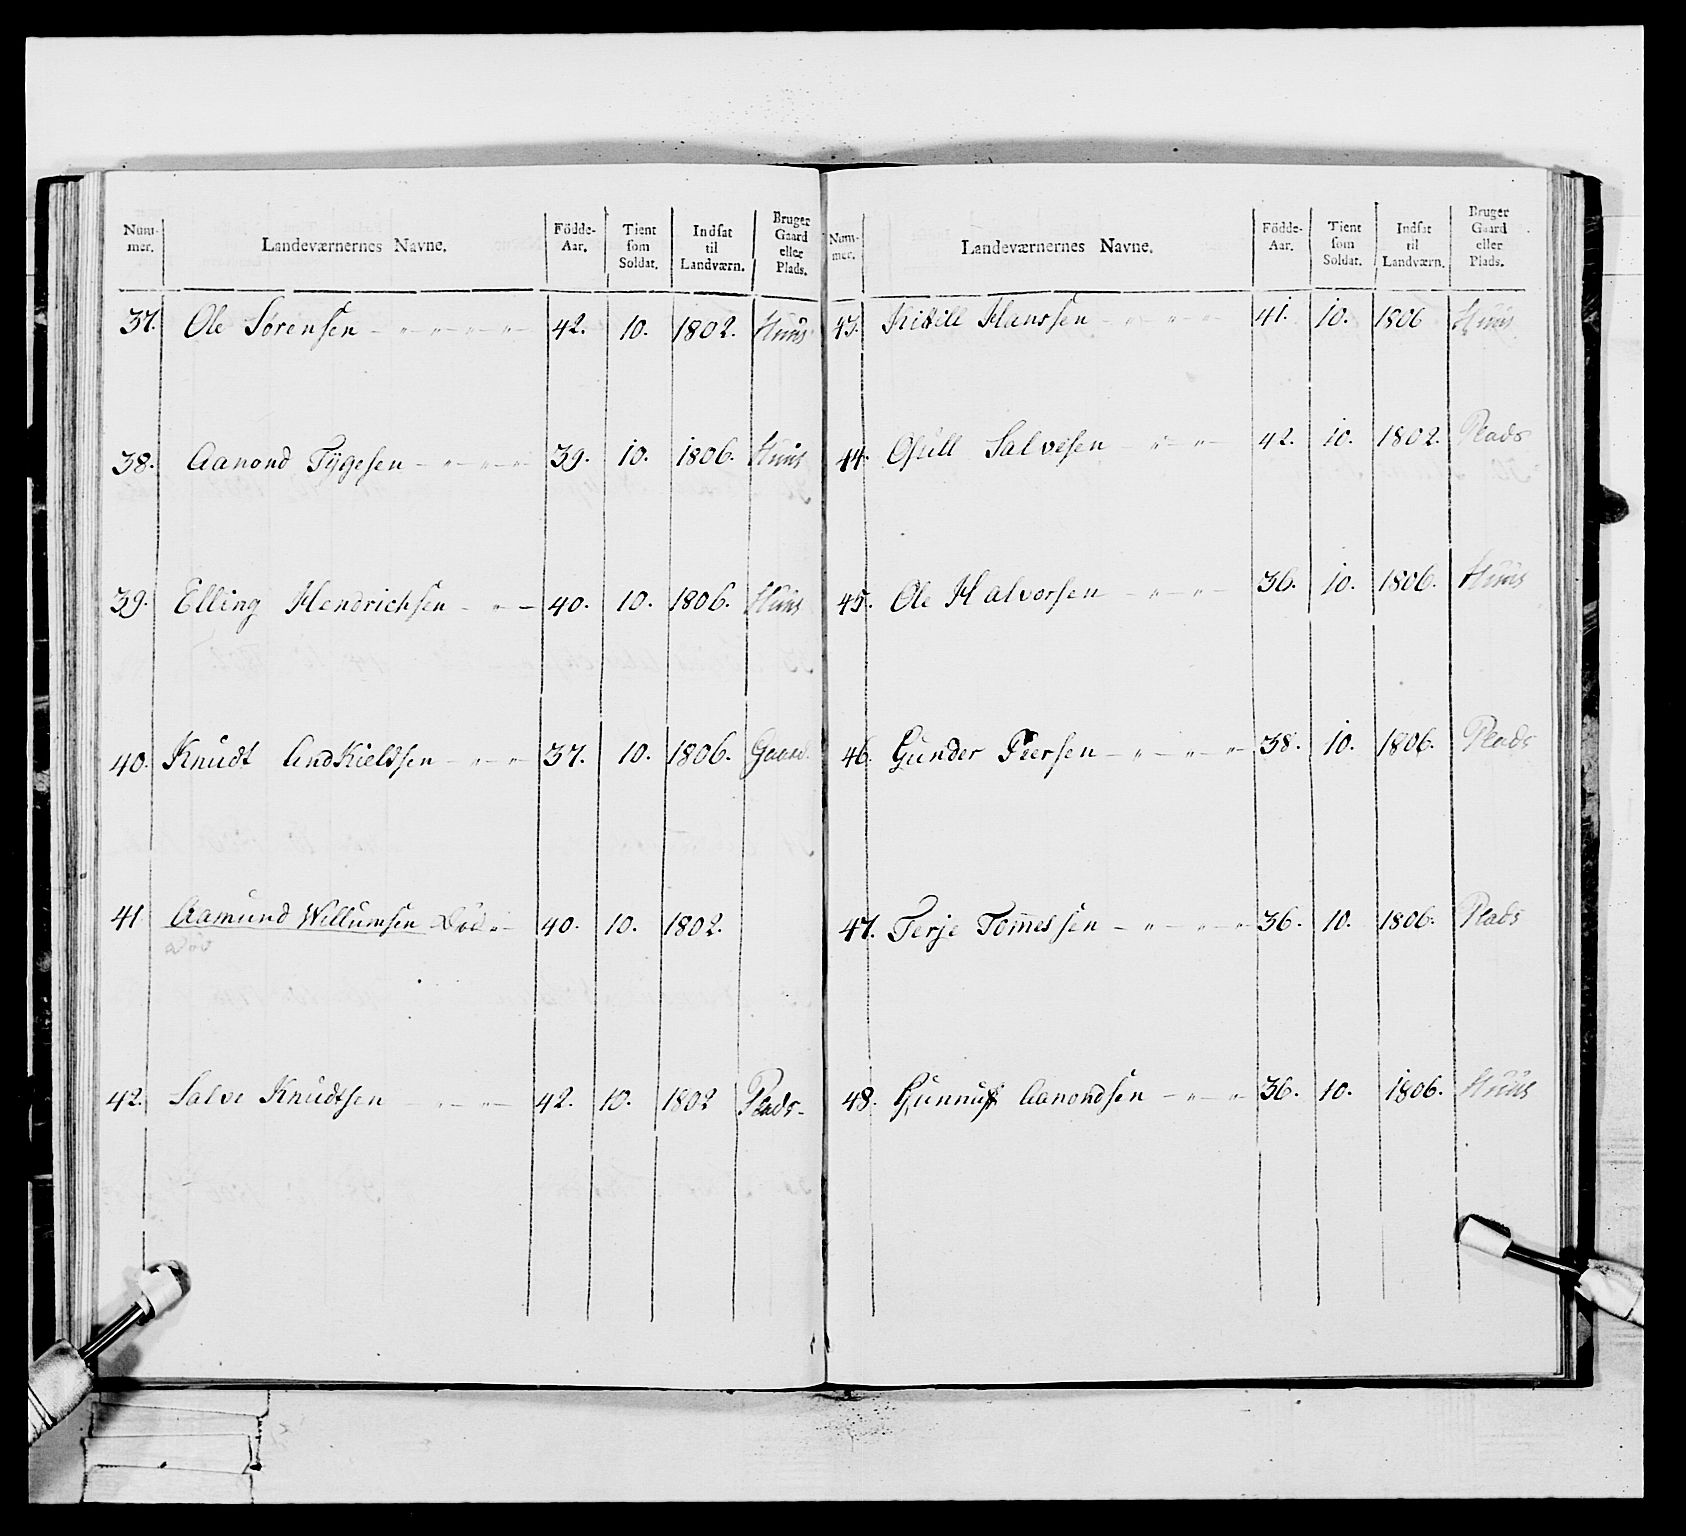 Num-mer. Landeværnernes Navne. Födde-Aar. Tient som Soldat. Indsat til Landværn. Bruger Gaard eller Plads.
37. Ole Sørensen - „ - „ - „ - „ 42. 10. 1802. Huus
38. Aanond Tÿgesen - „ - „ - „ 39. 10. 1806. Huus
39. Elling Hendrichsen - „ - 40. 10. 1806. Huus
40. Knudt AndKieldsen - „ - „ 37. 10. 1806. Gaard.
41 Aamund Willumsen Död „ - 40. 10. 1802.
död
42. Salve Knudtsen - „ - „ - 42. 10. 1802 Plads-
Num-mer. Landeværnernes Navne. Födde-Aar. Tient som Soldat. Indsat til Landværn. Bruger Gaard eller Plads.
43. Hanssen - „ - „ - „ 41. 10. 1806 Huus
44. Salvesen - „ - „ - 42. 10. 1802. Plads
45. Ole Halvorsen - „ - „ - 36. 10. 1806. Huus
46. Gunder Peersen - „ - „ - „ 38. 10. 1806. Plads
47. Terje Tom̅essen - „ - „ - „ 36. 10. 1806. Plads
48. Aanondsen - „ - „ 36. 10. 1806. Huus